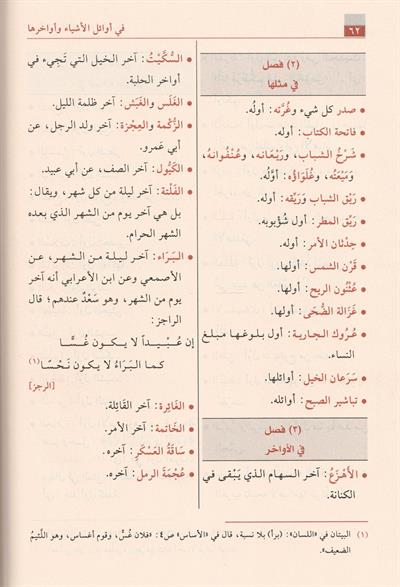 ٦٢
في أوائل الأشياء وأواخرها
(٢) فصل
في مثلها
• صدر كل شيء وغُرَّته: أوله.
• فاتحة الكتاب: أوله.
• شَرْخُ الشباب، ورَيْعانه، وعُنْفوانهُ،
ومَيْعَتُه، وغُلَوَاؤه: أوَّلُه.
• رَيِّق الشباب ورَيِّقه: أوله.
• رَيِّق المطر: أول شُؤبوبه.
• حِدْثان الأمر: أوله.
• قَرْن الشمس: أولها.
• عُثْنُون الريح: أولها.
• غَزَالة الضُّحَى: أولها.
• عُروك الجارية: أول بلوغها مبلغ
النساء.
• سَرَعان الخيل: أوائلها.
• تباشير الصبح: أوائله.
(٣) فصل
في الأواخر
• الأَهْزَعُ: آخر السهام الذي يَبْقى في
الكنانة.
• السُّكَّيْتُ: آخر الخيل التي تَجِيء في
أواخر الحلبة.
• الغَلَس والغَبَش: آخر ظلمة الليل.
• الزُّكْمة والعِجْزة: آخر ولد الرجل، عن
أبي عَمرو.
• الكَيُّول: آخر الصف، عن أبي عبيد.
• الفَلْتة: آخر ليلة من كل شهر، ويقال:
بل هي آخر يوم من الشهر الذي بعده
الشهر الحرام.
• البَرَاء: آخر ليلة من الشهر، عن
الأصمعي وعن ابن الأعرابي أنه آخر
يوم من الشهر، وهو سَعْدٌ عندهم؛ قال
الراجز:
إن عُبَيْداً لا يكون غُسًّا
كما البَرَاءُ لا يكون نَحْسًا(١)
[الرجز]
• الغَائِرة: آخر القَائِلة.
• الخَاتمة: آخر الأمر.
• سَاقَةُ العَسْكَر: آخره.
• عُجْمَة الرمل: آخره.
(١) البيتان في «اللسان»: (برأ) بلا نسبة، قال في «الأساس» ص٤: «فلان غُسٌّ، وقوم أغساس، وهو اللَّئيمُ
الضعيف».